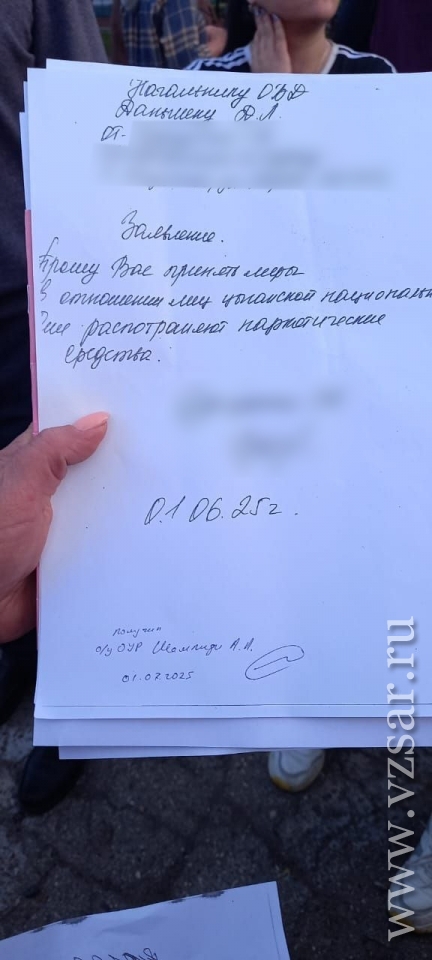 Начальнику ОВД
Даншену Д.Л.
от
Заявление.
Прошу Вас принять меры
В отношении лиц цыганской национальн
распотраняют наркотические
средства.
01 06.25г.
получил
о/у ОУР А.А.
01.07.2025
www.vzsar.ru